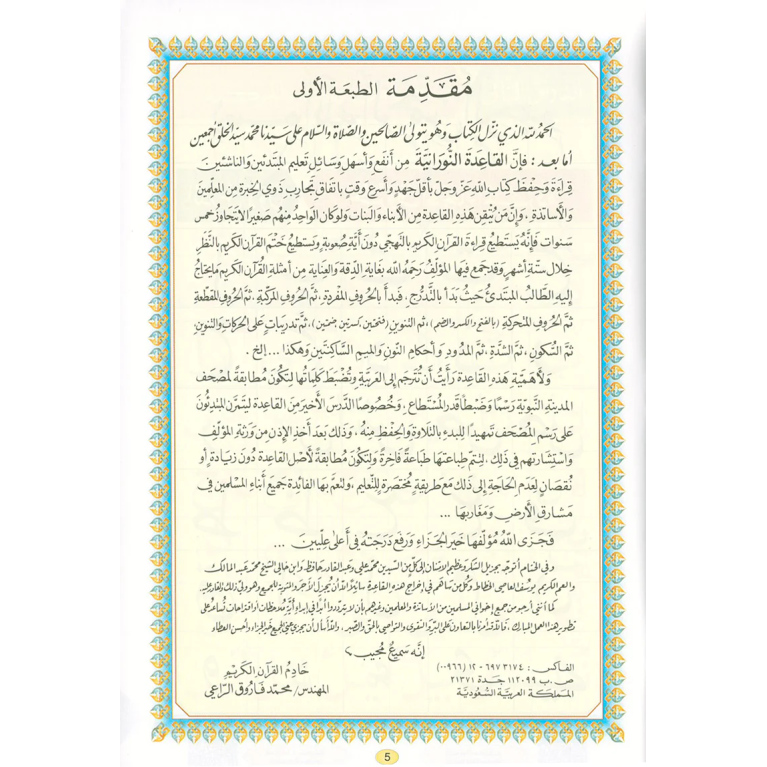 مُقَدِّمَة الطبعَة الأولى
الحمدُ لله الذي نزّل الكتاب وَهُو يتولى الصّالحين والصّلاة والسّلام على سَيّدنا محمّد سَيّد الخلق أجمعين
أما بعد : فإنَّ القَاعِدَة النُّورَانِيَّة مِن أنفَع وَأسهَلِ وَسَائِل تعليم المبتَدئين وَالناشئين
قِراءَةَ وَحِفظَ كِتاب اللهِ عَزّ وَجلّ بأقَلِّ جَهدٍ وَأسرَع وَقتٍ باتفاق تجَاربِ ذَوي الخِبرَة مِن المعلّمين
وَالأسَاتذة . وَإنَّ مَن يُتقِن هَذِهِ القاعدَة مِن الأبناء وَالبنات وَلوكان الوَاحِدُ مِنهُم صَغيرًا لا يتجَاوز خمسَ
سَنوات فَإنَّهُ يَستطيعُ قِراءَةَ القرآن الكريم بالتّهجّي دُونَ أَيَّةِ صُعوبةٍ وَيستَطيعُ خَتمَ القرآن الكريم بالنّظر
خِلال سِتّةِ أشهرٍ وَقد جَمع فيهَا المؤلّفُ رَحِمَهُ الله بغَايةِ الدِّقةِ والعِنايةِ مِن أمثلةِ القُرآن الكريم مَا يحتاجُ
إليهِ الطّالبُ المبتَدئُ حَيثُ بَدأ بالتَّدرُّج . فبَدأ بالحرُوفِ المفردَة ، ثمّ الحرُوف المركبّةِ ، ثمّ الحرُوف المقَطّعةِ
ثمَّ الحرُوف المتحركةِ (بالفتح والكسر والضم) ، ثم التنوين (فتحتين ، كسرتين ، ضمتين) ، ثمّ تدريبات على الحركات والتّنوين،
ثمَّ السّكون ، ثمّ الشّدّة ، ثمَّ المدُود وَأحكام النّون والميم السَّاكنَتَين وَهكذا ... إلخ .
وَلأهَميَّةِ هَذِهِ القَاعدَة رَأيتُ أن تُترجَم إلى العَربيَّةِ وَتُضبَط كَلِمَاتُها لِتكُونَ مُطابقَةً لمصحَف
المدينةِ النّبويّة رَسْمًا وَضَبطًا قدرَ المُستطاع . وَخُصُوصًا الدَّرسَ الأخيرَ مِنَ القاعِدَة ليتمَرَّنَ المبتَدِئُون
عَلى رَسْمِ المُصْحَف تمهيدًا للبدءِ بالتّلاوةِ والحِفظِ مِنهُ ، وَذلكَ بَعدَ أخذِ الإذن مِن وَرثةِ المؤلِّفِ
وَاستِشارَتهم في ذَلِك . ليتمّ طِباعتهَا طباعةً فَاخِرَةً وَلتكُونَ مُطابقَةً لأصْل القاعدَة دُونَ زيَادةٍ أو
نُقصَانٍ لِعدَم الحَاجةِ إلى ذَلك مَع طَريقةٍ مُختصَرةٍ للتّعليم ، وَلتعُمَّ بهَا الفائدَة جَميعَ أبناءِ المسلمين في
مَشارقِ الأرضِ وَمَغاربهَا ...
فَجَزى اللهُ مُؤلّفهَا خَيرَ الجَزاء وَرفعَ دَرجَتَهُ في أعْلى عِلّيين ...
وفي الختام أتوجّه بجزيل الشكر وعظيم الامتنان إلى كل من السيد بن محمد علي وعبد القادر حافظ وابن خالي الشيخ محمد عبد المالك
والعم الكريم يوسف العاصي الخطاط وكلّ من ساهم في إخراج هذه القاعدة سائلًا الله أن يجزل الأجر والمثوبة للجميع وهو ولي ذلك والقادر عليه.
كما أنني أرجو من جميع إخواني المسلمين من الأساتذة والمعلمين وغيرهم بأن لا يترددوا أبدًا في إبداء أيّة ملاحظات أو اقتراحات تُساعد على
تطوير هذا العمل المبارك ، فالله أمرنا بالتعاون على البر والتقوى والتواصي بالحق والصبر . والله أسأل أن يجزي عني الجميع خير الجزاء وأحسن العطاء
إنّه سَميعٌ مُجيب
الفاكس : ٦٩٧٣١٧٤ - ١٢ (٠٠٩٦٦)
ص . ب ١١٢٠٩٩ جدة ٢١٣٧١
المملكة العربية السُّعودية
خَادِمُ القرآن الكَريم
المهندس / محمّد فَارُوق الرّاعي
5